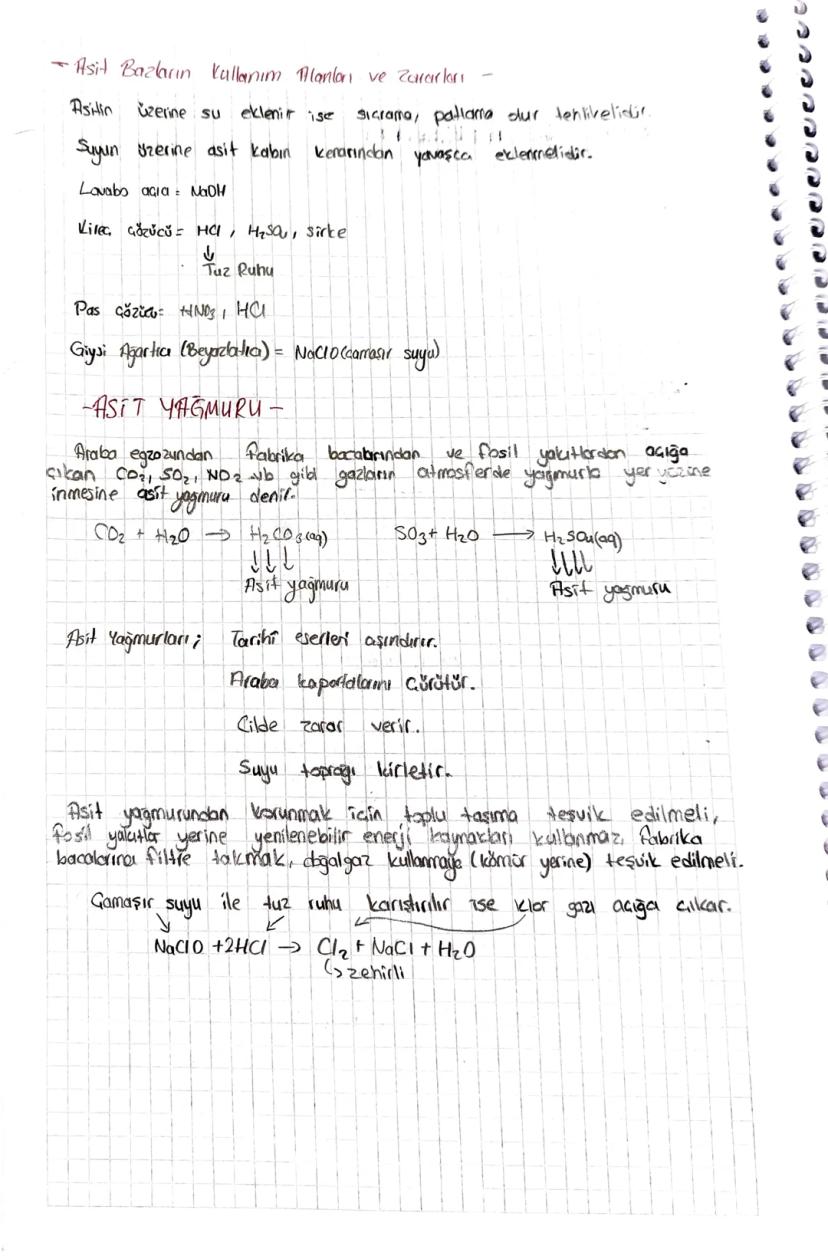 - Asit Bazların Kullanım Alanları ve Zararları -
Asitin üzerine su eklenir ise sıçrama, patlama olur tehlikelidir.
Suyun üzerine asit kabın kenarından yavaşca eklenmelidir.
Lavabo açıcı = NaOH
Kireç çözücü = HCl, H₂SO₄, sirke
↓
Tuz Ruhu
Pas çözücü = HNO₃, HCl
Giysi Ağartıcı (Beyazlatıcı) = NaClO (çamaşır suyu)
- ASİT YAĞMURU -
Araba egzozundan fabrika bacalarından ve fosil yakıtlardan açığa
çıkan CO₂, SO₂, NO₂ vb gibi gazların atmosferde yağmurla yer yüzüne
inmesine asit yağmuru denir.
CO₂ + H₂O → H₂CO₃(aq) SO₃ + H₂O → H₂SO₄(aq)
↓↓↓ ↓↓↓↓
Asit yağmuru Asit yağmuru
Asit Yağmurları; Tarihî eserleri aşındırır.
Araba kaportalarını çürütür.
Cilde zarar verir.
Suyu toprağı kirletir.
Asit yağmurundan korunmak için toplu taşıma teşvik edilmeli,
fosil yakıtlar yerine yenilenebilir enerji kaynakları kullanmaz, fabrika
bacalarına filtre takmak, doğalgaz kullanmaya (kömür yerine) teşvik edilmeli.
Çamaşır suyu ile tuz ruhu karıştırılır ise klor gazı açığa çıkar.
NaClO + 2HCl → Cl₂ + NaCl + H₂O
↳ zehirli